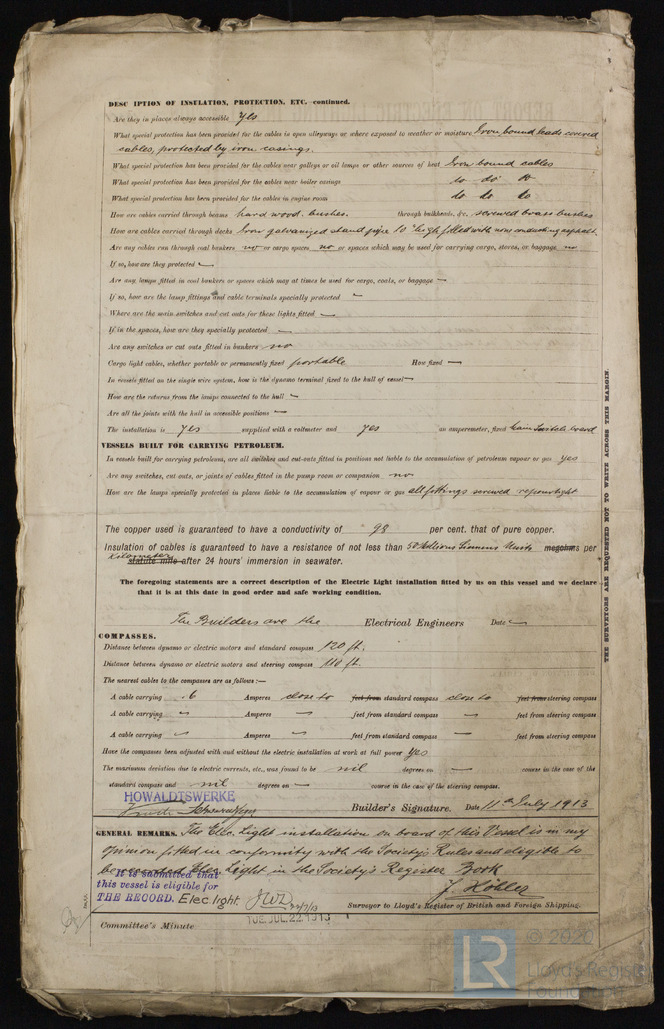 DESC IPTION OF INSULATION, PROTECTION, ETC.—continued.
Are they in places always accessible Yes
What special protection has been provided for the cables in open alleyways or where exposed to weather or moisture Iron bound leads covered
cables, protected by iron casings.
What special protection has been provided for the cables near galleys or oil lamps or other sources of heat Iron bound cables
What special protection has been provided for the cables near boiler casings do do do
What special protection has been provided for the cables in engine room do do do
How are cables carried through beams hard wood bushes. through bulkheads, &c. screwed brass bushes
How are cables carried through decks Iron galvanized stand pipe 10" high filled with non conducting asphalt.
Are any cables run through coal bunkers no or cargo spaces no or spaces which may be used for carrying cargo, stores, or baggage no
If so, how are they protected —
Are any lamps fitted in coal bunkers or spaces which may at times be used for cargo, coals, or baggage —
If so, how are the lamp fittings and cable terminals specially protected —
Where are the main switches and cut outs for these lights fitted —
If in the spaces, how are they specially protected —
Are any switches or cut outs fitted in bunkers no
Cargo light cables, whether portable or permanently fixed portable How fixed —
In vessels fitted on the single wire system, how is the dynamo terminal fixed to the hull of vessel —
How are the returns from the lamps connected to the hull —
Are all the joints with the hull in accessible positions —
The installation is yes supplied with a voltmeter and yes an amperemeter, fixed board
VESSELS BUILT FOR CARRYING PETROLEUM.
In vessels built for carrying petroleum, are all switches and cut-outs fitted in positions not liable to the accumulation of petroleum vapour or gas yes
Are any switches, cut outs, or joints of cables fitted in the pump room or companion no
How are the lamps specially protected in places liable to the accumulation of vapour or gas all fittings screwed vapourtight
THE SURVEYORS ARE REQUESTED NOT TO WRITE ACROSS THIS MARGIN.
The copper used is guaranteed to have a conductivity of 98 per cent. that of pure copper.
Insulation of cables is guaranteed to have a resistance of not less than 50 Millions Siemens Units megohms per
Kilometer
statute mile after 24 hours' immersion in seawater.
The foregoing statements are a correct description of the Electric Light installation fitted by us on this vessel and we declare
that it is at this date in good order and safe working condition.
The Builders are the Electrical Engineers Date —
COMPASSES.
Distance between dynamo or electric motors and standard compass 120 ft.
Distance between dynamo or electric motors and steering compass 110 ft.
The nearest cables to the compasses are as follows:—
A cable carrying .6 Amperes close to feet from standard compass close to feet from steering compass
A cable carrying — Amperes — feet from standard compass — feet from steering compass
A cable carrying — Amperes — feet from standard compass — feet from steering compass
Have the compasses been adjusted with and without the electric installation at work at full power Yes
The maximum deviation due to electric currents, etc., was found to be nil degrees on — course in the case of the
standard compass and nil degrees on — course in the case of the steering compass.
HOWALDTSWERKE
Builder's Signature. Date 11th July 1913
GENERAL REMARKS. The Elec. Light installation on board of this Vessel is in my
opinion fitted in conformity with the Society's Rules and eligible to
be recorded Elec. Light in the Society's Register Book
It is submitted that
this vessel is eligible for
THE RECORD. Elec light 22/7/13
J. Köhler
Surveyor to Lloyd's Register of British and Foreign Shipping.
TUE. JUL. 22. 1913
Committee's Minute
LR
© 2020
Lloyd's Register
Foundation